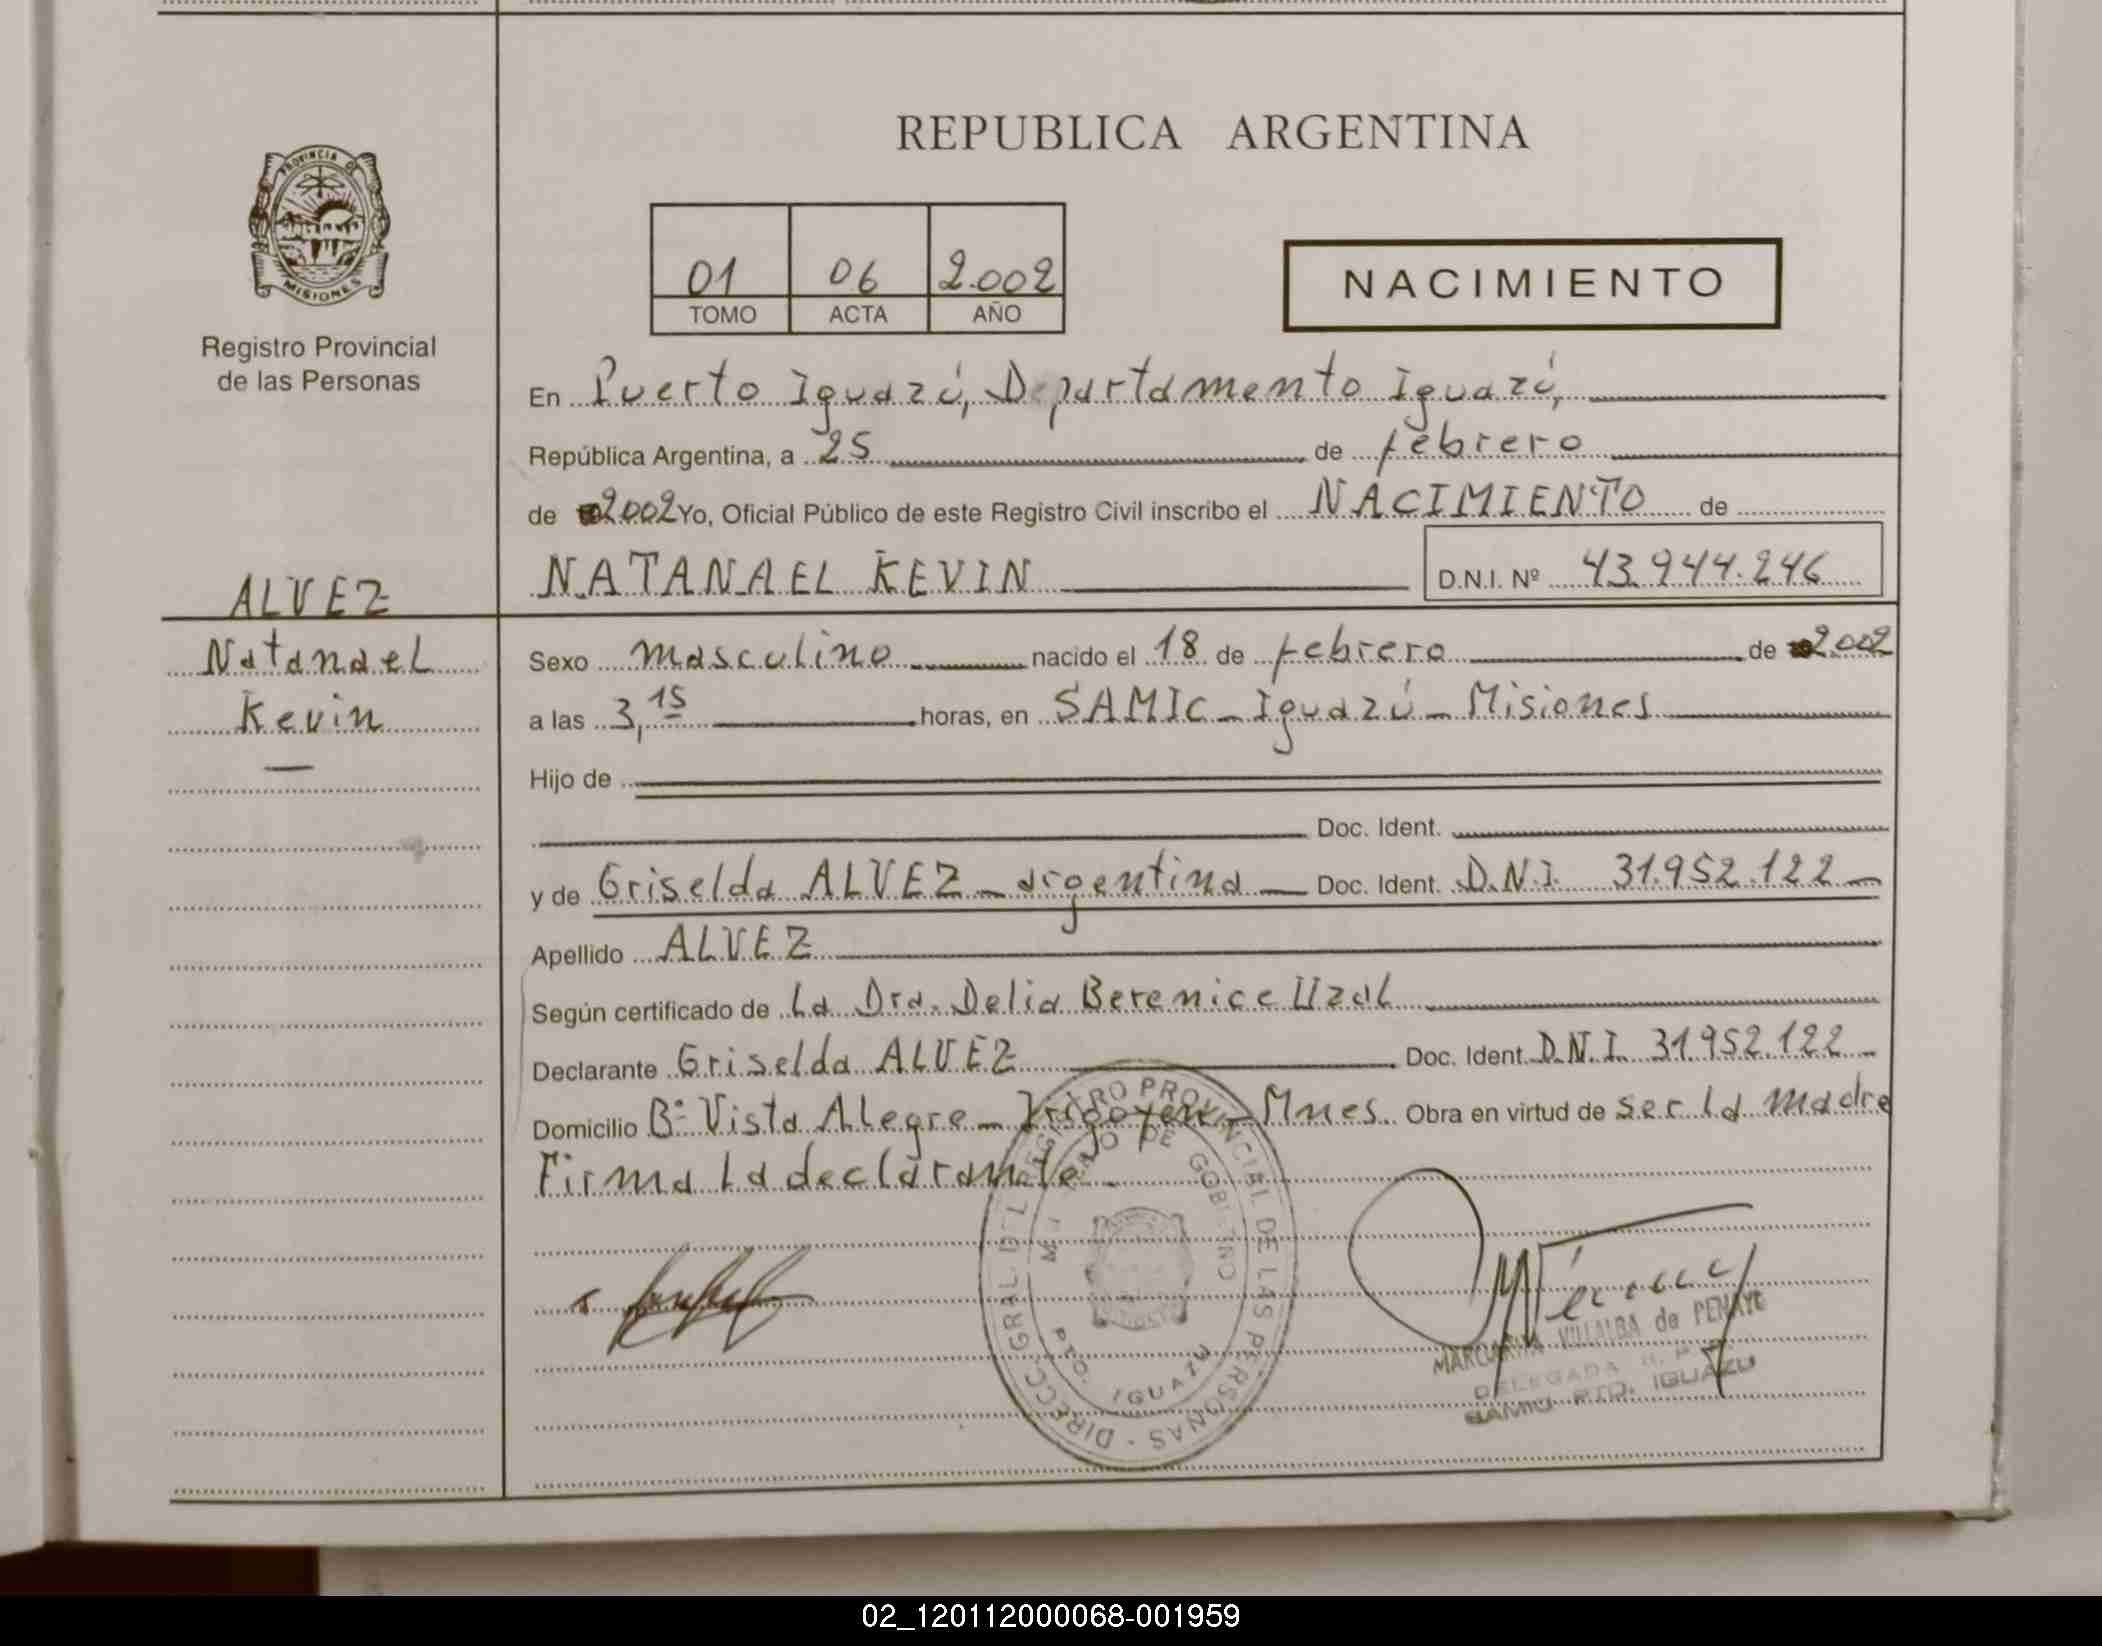 REPUBLICA ARGENTINA
PROVINCIA DE MISIONES
Registro Provincial
de las Personas
01 06 2.002
TOMO ACTA AÑO
NACIMIENTO
En Puerto Iguazú, Departamento Iguazú,
República Argentina, a 25 de febrero
de 2002 Yo, Oficial Público de este Registro Civil inscribo el NACIMIENTO de
NATANAEL KEVIN D.N.I. Nº 43.944.246
ALVEZ
Natanael
Kevin
Sexo masculino nacido el 18 de febrero de 2002
a las 3,15 horas, en SAMIC - Iguazú - Misiones
Hijo de
Doc. Ident.
y de Griselda ALVEZ - argentina - Doc. Ident. D.N.I. 31.952.122 -
Apellido ALVEZ
Según certificado de La Dra. Delia Berenice Uzal
Declarante Griselda ALVEZ Doc. Ident. D.N.I. 31.952.122 -
Domicilio Bº Vista Alegre - Irigoyen - Mnes. Obra en virtud de ser la madre
Firma La declarante.
DIRECC. GRAL. DEL REGISTRO PROVINCIAL DE LAS PERSONAS
DE GOBIERNO
PTO. IGUAZU
VILLALBA de PENAYO
DELEGADA
PTO. IGUAZU
02_120112000068-001959